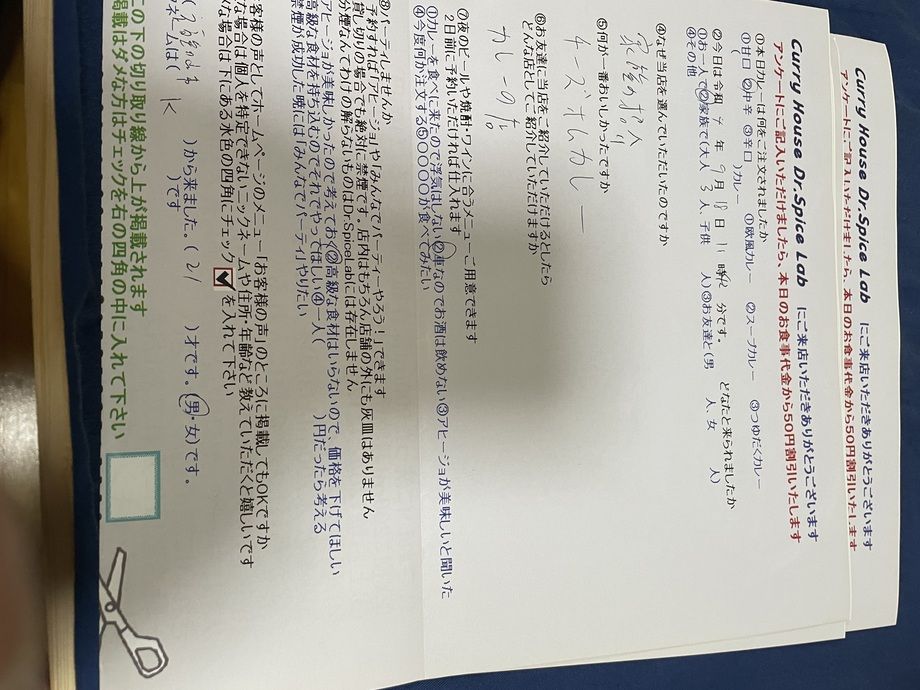 Curry House Dr.Spice Lab にご来店いただきありがとうございます
アンケートにご記入いただけましたら、本日のお食事代金から50円割引いたします
Curry House Dr.Spice Lab にご来店いただきありがとうございます
アンケートにご記入いただけましたら、本日のお食事代金から50円割引いたします
①本日カレーは何をご注文されましたか
①欧風カレー ②スープカレー ③つゆだくカレー
①甘口 ②中辛 ③辛口
( )カレー
②今日は令和 7 年 9月 18日 11時 分です。 どなたと来られましたか
①お一人で②ご家族で(大人 3 人、子供 人)③お友達と(男 人、女 人)
④その他
④なぜ当店を選んでいただいたのですか
家族
⑤何が一番おいしかったですか
チーズ カレー
⑥お友達に当店をご紹介していただけるとしたら
どんな店としてご紹介していただけますか
カレーの店
⑦夜のビールや焼酎・ワインに合うメニュー、ご用意できます
2日前に予約いただければ仕入れます
①カレーを食べに来たので浮気はしない②車なのでお酒は飲めない③アヒージョが美味しいと聞いた
④今度何か注文する⑤〇〇〇〇が食べてみたい
⑧パーティしませんか
予約すれば「アヒージョ」や「みんなでパーティーやろう!」できます
貸し切りの場合でも絶対に禁煙です。店内はもちろん店舗の外にも灰皿はありません
分煙なんてわけの解らないものはDr.SpiceLabには存在しません
アヒージョが美味しかったので考えておく②高級な食材はいらないので、価格を下げてほしい
高級な食材を持ち込むのでそれでやってほしい④一人( )円だったら考える
禁煙が成功した暁には「みんなでパーティ」やりたい
客様の声としてホームページのメニュー「お客様の声」のところに掲載してもOKですか
な場合は個人を特定できないニックネームや住所・年齢など教えていただくと嬉しいです
な場合は下にある水色の四角にチェック✓を入れて下さい
( )から来ました。( 21 )才です。(男・女)です。
ネームは( K )です
この下の切り取り線から上が掲載されます
掲載はダメな方はチェックを右の四角の中に入れて下さい